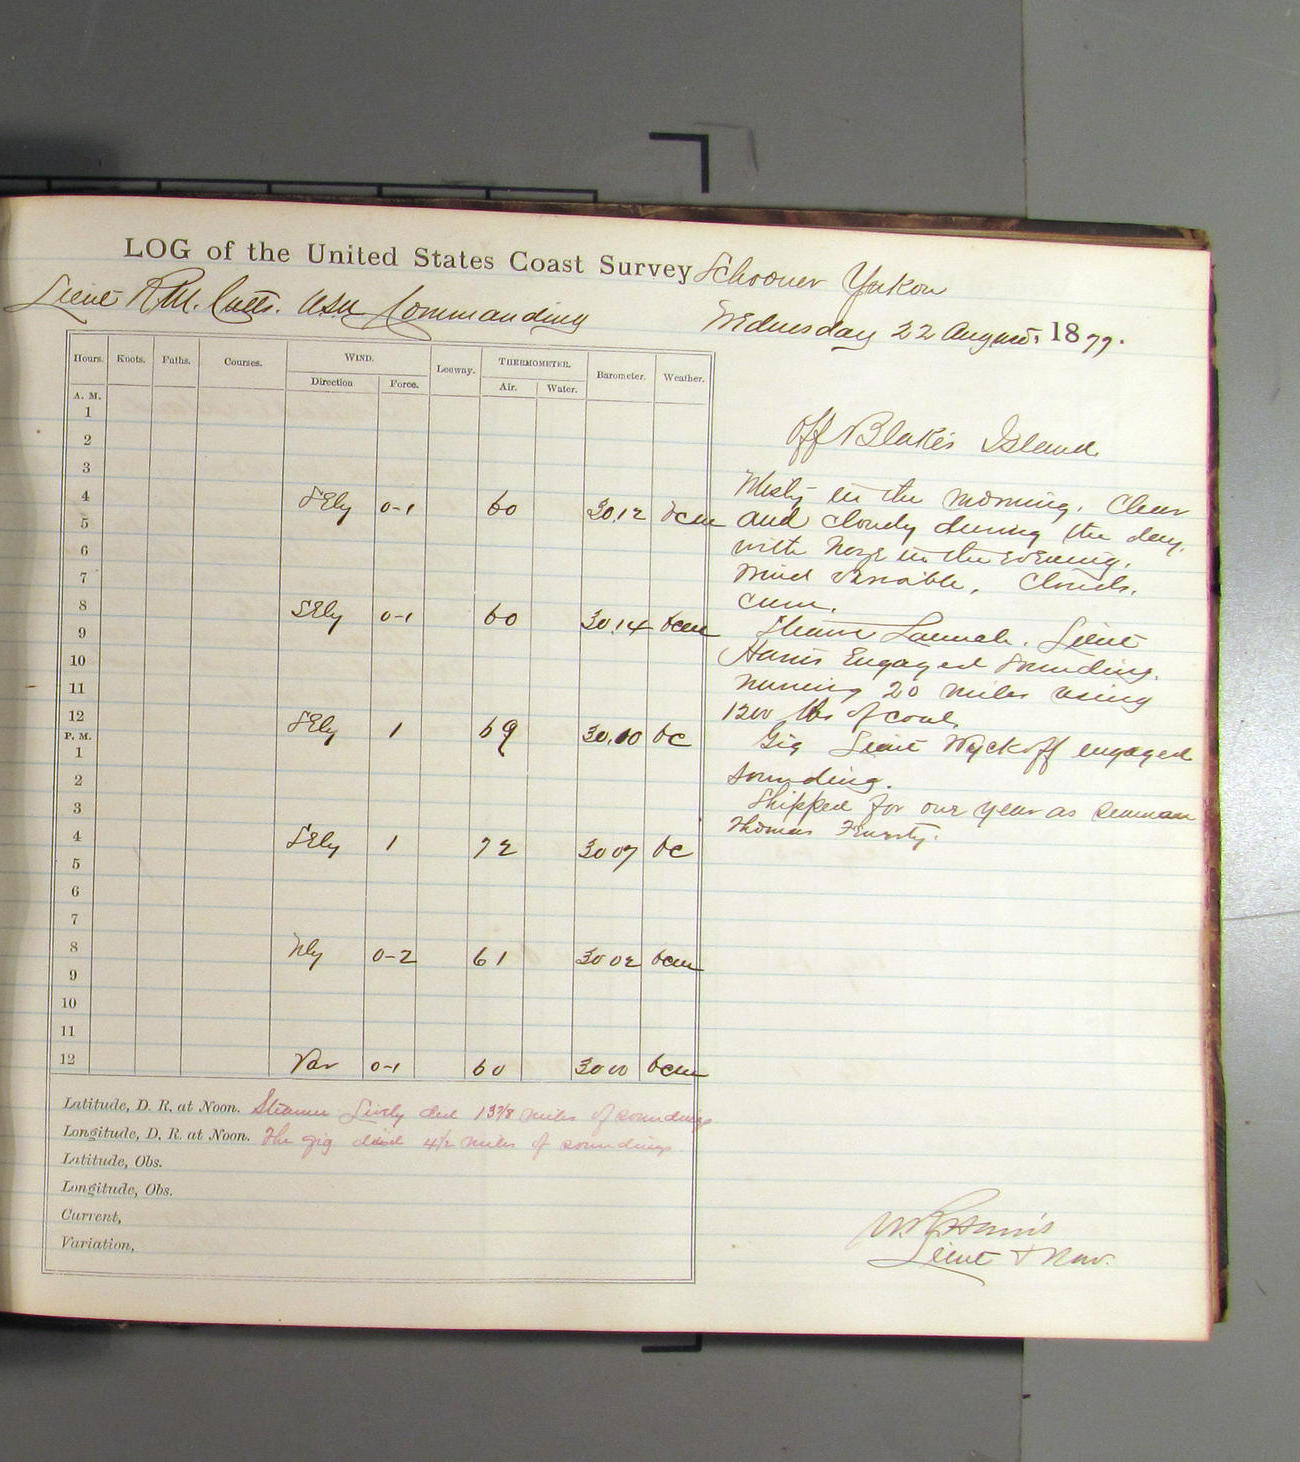 LOG of the United States Coast Survey Schooner Yukon
Lieut R.M. Cutts. USN Commanding
Wednesday 22 August, 1877.
Hours. Knots. Faths. Courses. WIND. Leeway. THERMOMETER. Barometer. Weather.
Direction Force. Air. Water.
A. M.
1
2
3
4 SEly 0-1 60 30.12 bcm
5
6
7
8 SEly 0-1 60 30.14 bcm
9
10
11
12 SEly 1 69 30.10 bc
P. M.
1
2
3
4 SEly 1 72 30 07 bc
5
6
7
8 Nly 0-2 61 30 02 bcm
9
10
11
12 Var 0-1 60 30 00 bcm
Latitude, D. R. at Noon. Steamer Lively did 13 7/8 miles of soundings
Longitude, D. R. at Noon. The gig did 4 1/2 miles of soundings
Latitude, Obs.
Longitude, Obs.
Current,
Variation,
Off Blake's Island
Misty in the morning. Clear
and cloudy during the day,
with haze in the evening.
Wind variable. Clouds.
cum.
Steam Launch. Lieut
Harris Engaged Sounding.
running 20 miles using
1200 lbs of coal.
Gig Lieut Wyckoff engaged
sounding.
Shipped for one year as seaman
Thomas
W.R. Harris
Lieut & Nav.